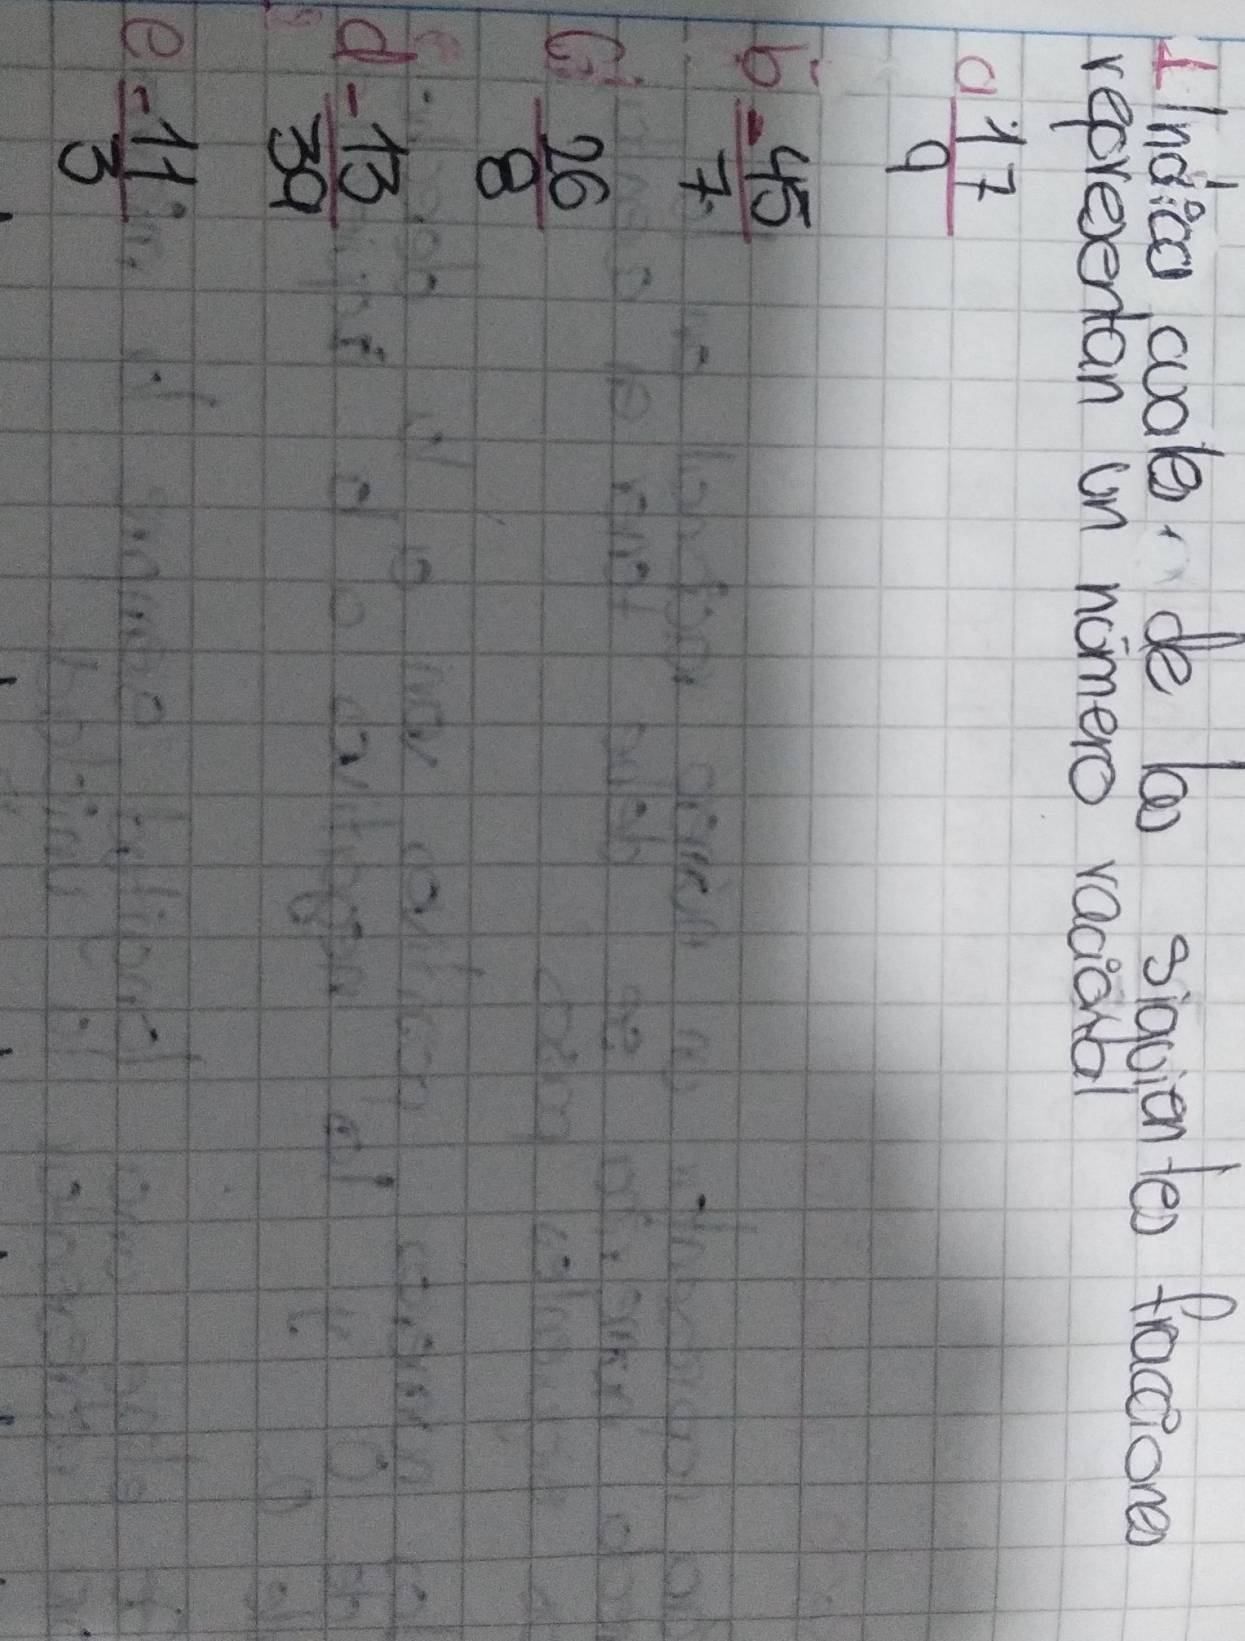 1 Indica cuales de las siguientes fracciones
representan un número racional
a 17/9
b -45/7
c 26/8
d -13/39
e -11/3